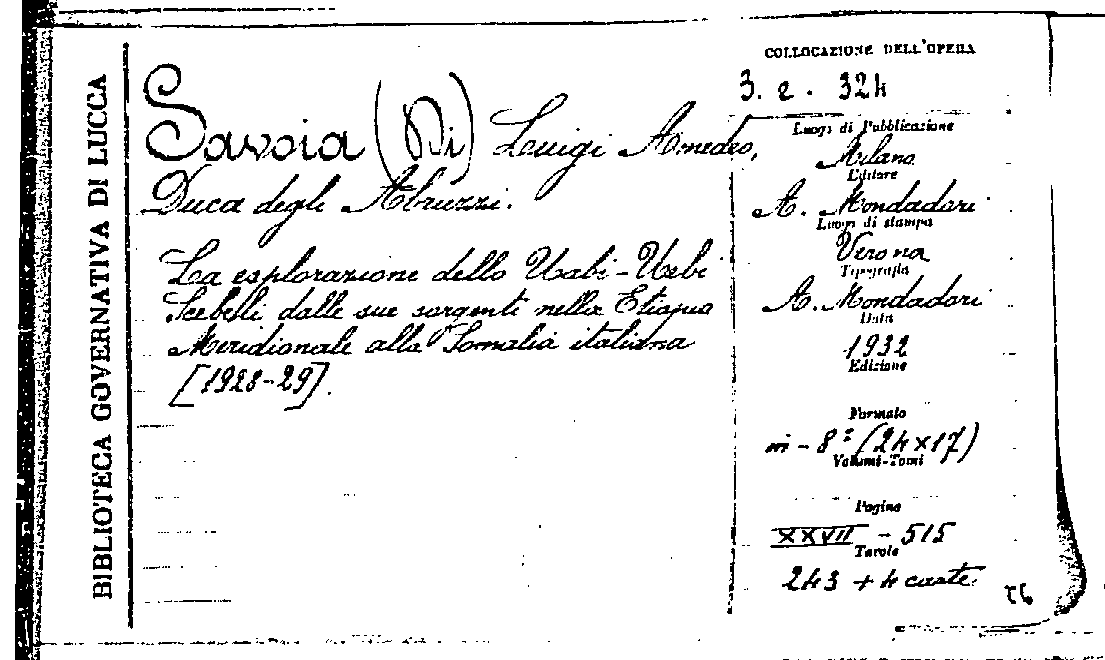 BIBLIOTECA GOVERNATIVA DI LUCCA
Savoia (Di) Luigi Amedeo,
Duca degli Abruzzi.
La esplorazione dello Uabi-Uebi
Scebeli dalle sue sorgenti nella Etiopia
Meridionale alla Somalia italiana
[1928-29].
COLLOCAZIONE DELL'OPERA
3. e. 324
Luogo di Pubblicazione
Milano
Editore
A. Mondadori
Luogo di stampa
Verona
Tipografia
A. Mondadori
Data
1932
Edizione
Formato
in-8º (24x17)
Volumi-Tomi
Pagine
XXVII - 515
Tavole
243 + 4 carte